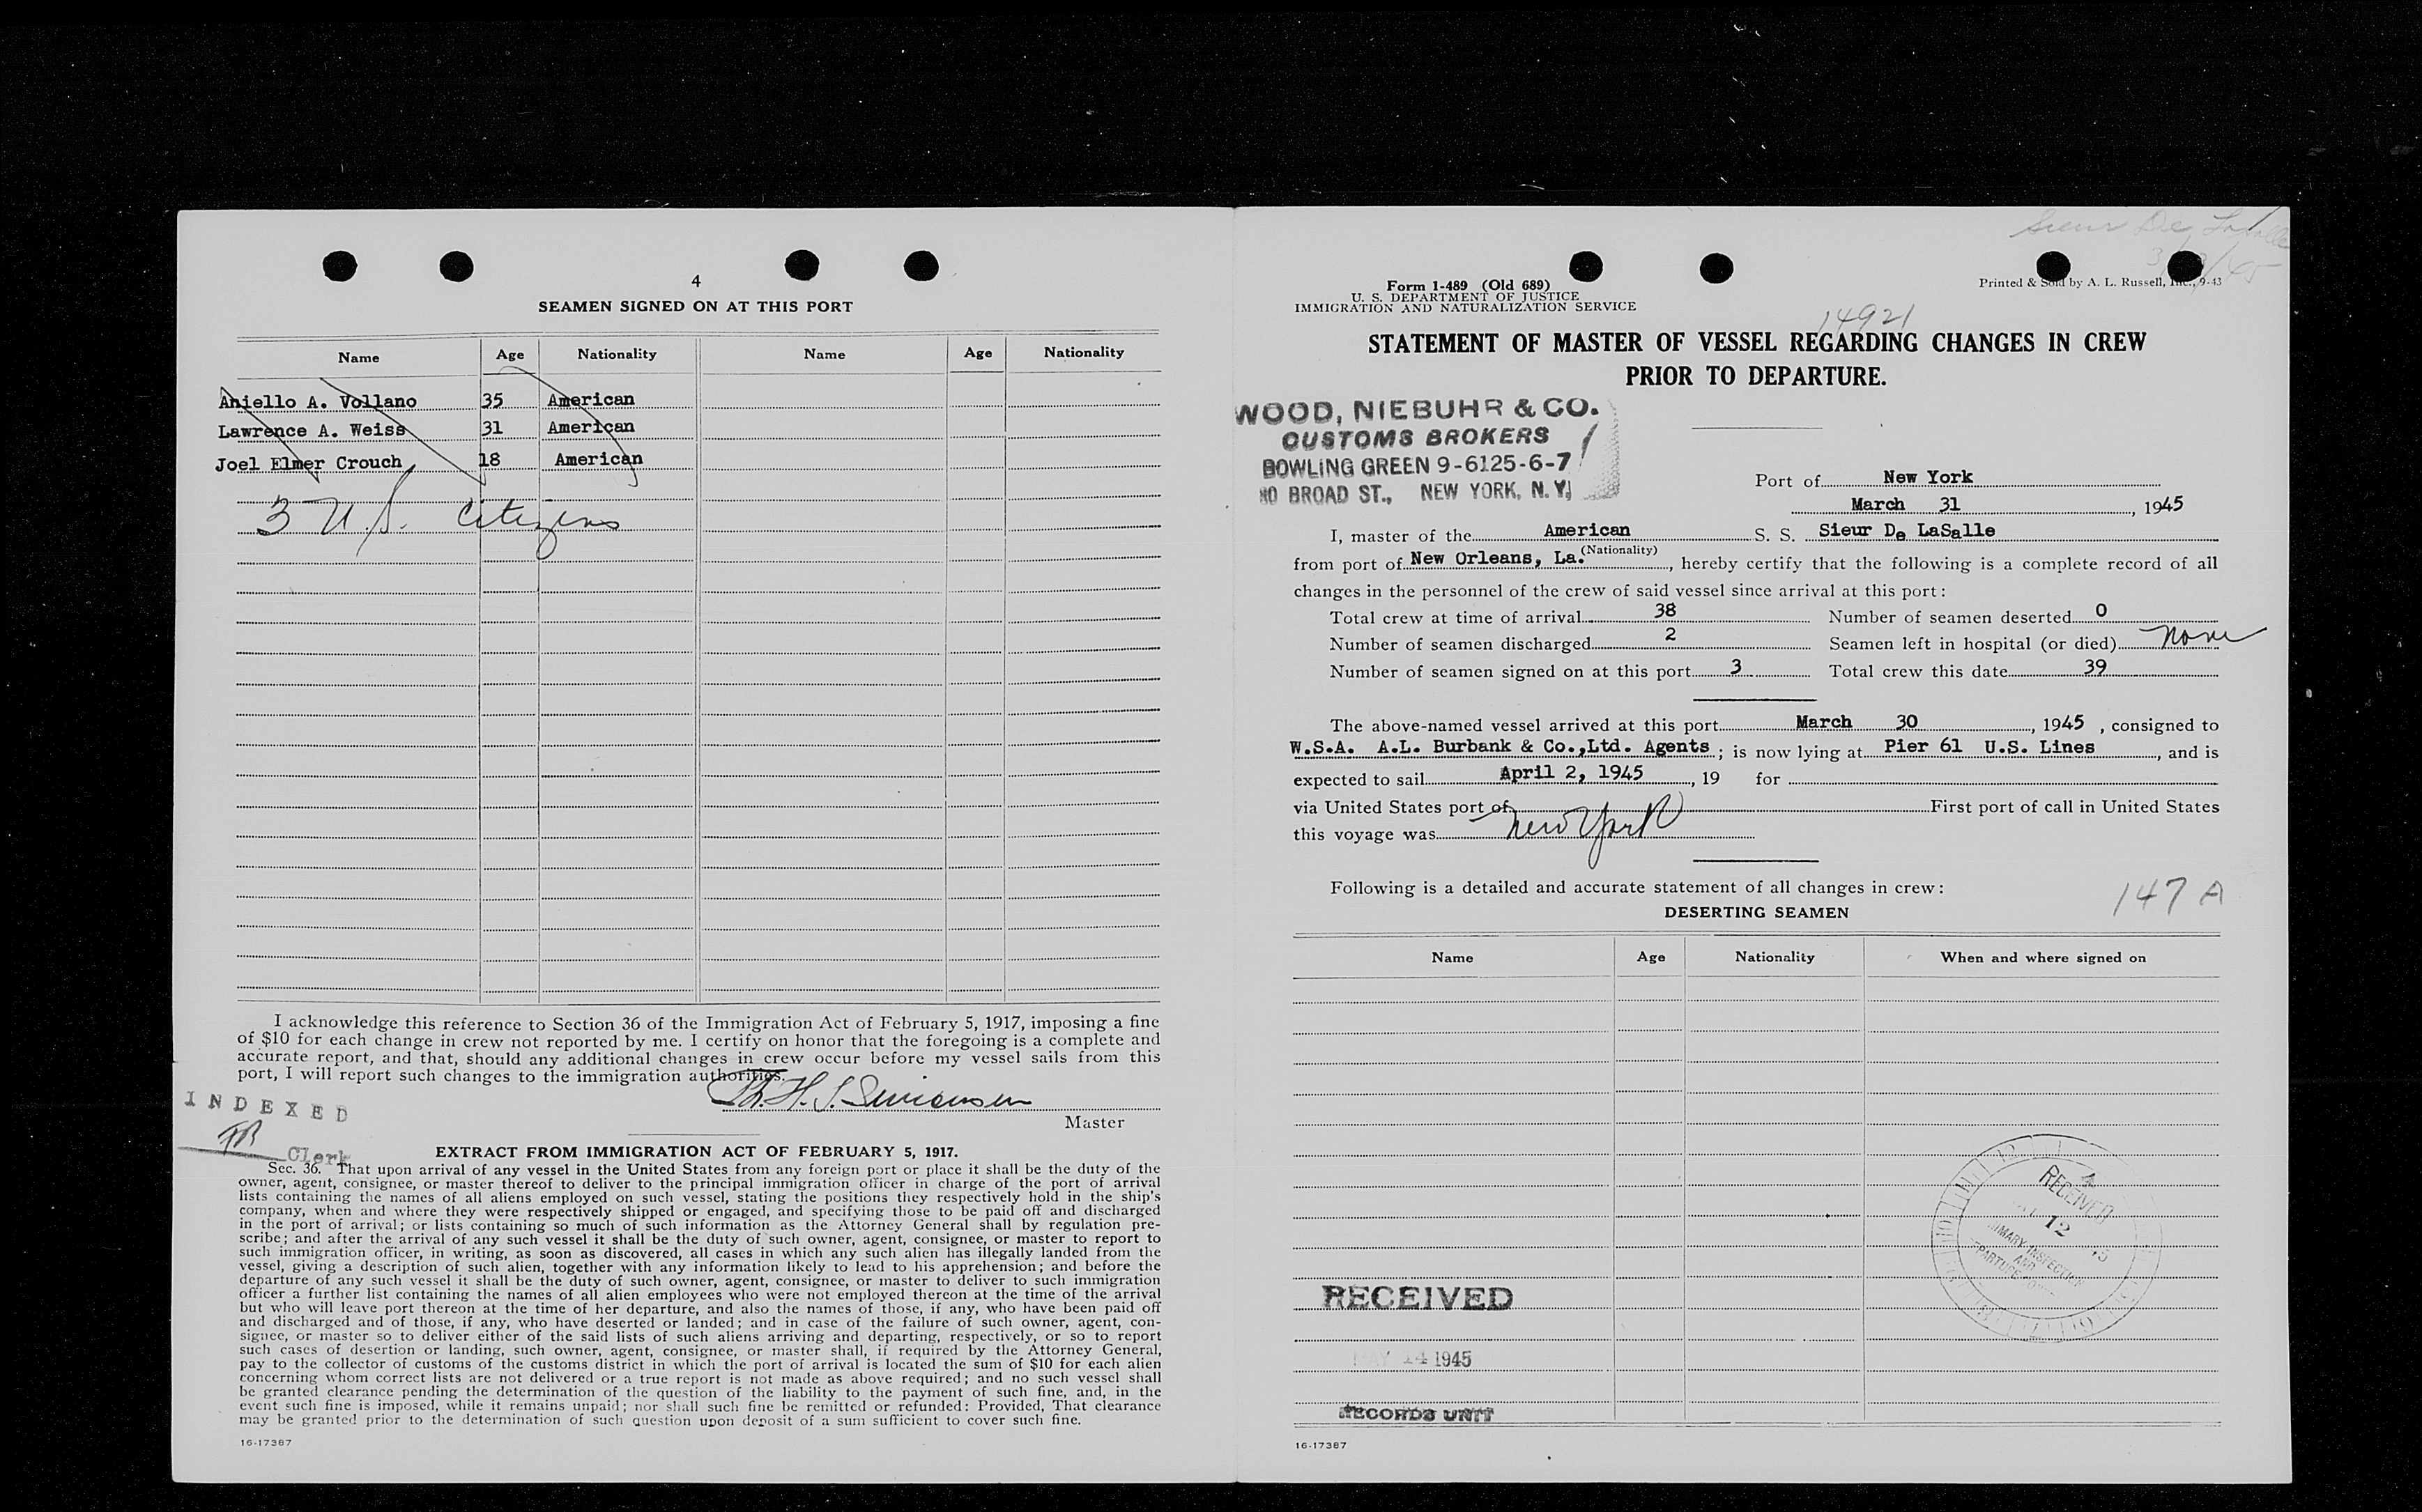 4
SEAMEN SIGNED ON AT THIS PORT
Name Age Nationality Name Age Nationality
Aniello A. Vollano 35 American
Lawrence A. Weiss 31 American
Joel Elmer Crouch 18 American
3 U.S. Citizens
I acknowledge this reference to Section 36 of the Immigration Act of February 5, 1917, imposing a fine
of $10 for each change in crew not reported by me. I certify on honor that the foregoing is a complete and
accurate report, and that, should any additional changes in crew occur before my vessel sails from this
port, I will report such changes to the immigration authorities.
Master
INDEXED
Clerk
EXTRACT FROM IMMIGRATION ACT OF FEBRUARY 5, 1917.
Sec. 36. That upon arrival of any vessel in the United States from any foreign port or place it shall be the duty of the
owner, agent, consignee, or master thereof to deliver to the principal immigration officer in charge of the port of arrival
lists containing the names of all aliens employed on such vessel, stating the positions they respectively hold in the ship's
company, when and where they were respectively shipped or engaged, and specifying those to be paid off and discharged
in the port of arrival; or lists containing so much of such information as the Attorney General shall by regulation pre-
scribe; and after the arrival of any such vessel it shall be the duty of such owner, agent, consignee, or master to report to
such immigration officer, in writing, as soon as discovered, all cases in which any such alien has illegally landed from the
vessel, giving a description of such alien, together with any information likely to lead to his apprehension; and before the
departure of any such vessel it shall be the duty of such owner, agent, consignee, or master to deliver to such immigration
officer a further list containing the names of all alien employees who were not employed thereon at the time of the arrival
but who will leave port thereon at the time of her departure, and also the names of those, if any, who have been paid off
and discharged and of those, if any, who have deserted or landed; and in case of the failure of such owner, agent, con-
signee, or master so to deliver either of the said lists of such aliens arriving and departing, respectively, or so to report
such cases of desertion or landing, such owner, agent, consignee, or master shall, if required by the Attorney General,
pay to the collector of customs of the customs district in which the port of arrival is located the sum of $10 for each alien
concerning whom correct lists are not delivered or a true report is not made as above required; and no such vessel shall
be granted clearance pending the determination of the question of the liability to the payment of such fine, and, in the
event such fine is imposed, while it remains unpaid; nor shall such fine be remitted or refunded: Provided, That clearance
may be granted prior to the determination of such question upon deposit of a sum sufficient to cover such fine.
16-17387
Sieur De LaSalle
Form 1-489 (Old 689)
U. S. DEPARTMENT OF JUSTICE
IMMIGRATION AND NATURALIZATION SERVICE
Printed & Sold by A. L. Russell, Inc., 9-43
14921
STATEMENT OF MASTER OF VESSEL REGARDING CHANGES IN CREW
PRIOR TO DEPARTURE.
WOOD, NIEBUHR & CO.
CUSTOMS BROKERS
BOWLING GREEN 9-6125-6-7
BROAD ST., NEW YORK, N. Y.
Port of New York
March 31, 1945
I, master of the American S. S. Sieur De LaSalle
(Nationality)
from port of New Orleans, La., hereby certify that the following is a complete record of all
changes in the personnel of the crew of said vessel since arrival at this port:
Total crew at time of arrival 38 Number of seamen deserted 0
Number of seamen discharged 2 Seamen left in hospital (or died) None
Number of seamen signed on at this port 3 Total crew this date 39
The above-named vessel arrived at this port March 30, 1945, consigned to
W.S.A. A.L. Burbank & Co.,Ltd. Agents; is now lying at Pier 61 U.S. Lines, and is
expected to sail April 2, 1945, 19 for
via United States port of First port of call in United States
this voyage was New York
Following is a detailed and accurate statement of all changes in crew:
147 A
DESERTING SEAMEN
Name Age Nationality When and where signed on
RECEIVED
12
RECEIVED
MAY 14 1945
RECORDS UNIT
16-17387